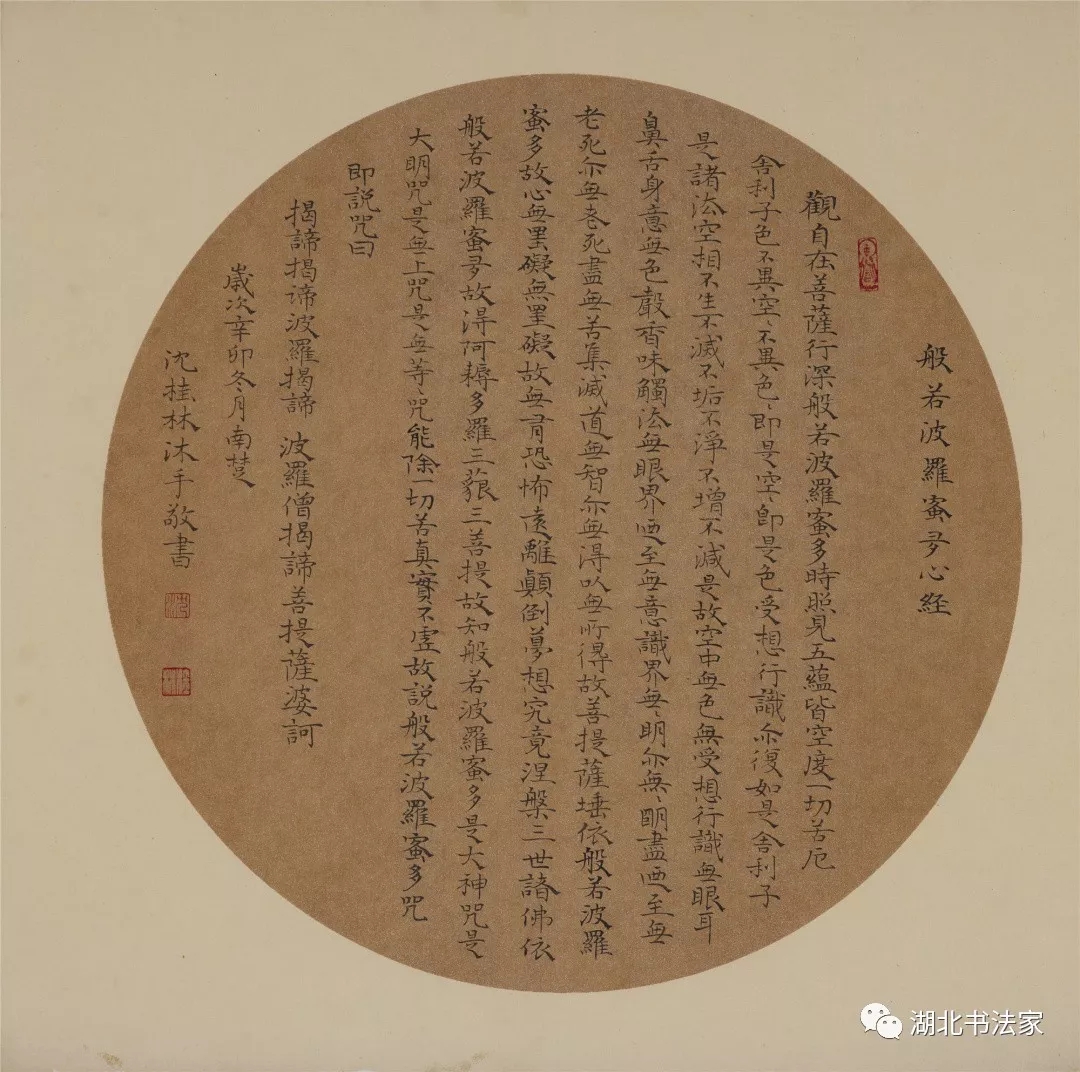 般若波羅蜜多心経
觀自在菩薩行深般若波羅蜜多時照見五蘊皆空度一切苦厄
舍利子色不異空〻不異色〻即是空〻即是色受想行識亦復如是舍利子
是諸法空相不生不滅不垢不淨不增不減是故空中無色無受想行識無眼耳
鼻舌身意無色聲香味觸法無眼界迺至無意識界無〻明亦無〻明盡迺至無
老死亦無老死盡無苦集滅道無智亦無得以無所得故菩提薩埵依般若波羅
蜜多故心無罣礙無罣礙故無有恐怖遠離顛倒夢想究竟涅槃三世諸佛依
般若波羅蜜多故得阿耨多羅三藐三菩提故知般若波羅蜜多是大神咒是
大明咒是無上咒是無等〻咒能除一切苦真實不虛故説般若波羅蜜多咒
即説咒曰
揭諦揭諦波羅揭諦 波羅僧揭諦菩提薩婆訶
歲次辛卯冬月南楚
沈桂林沐手敬書
湖北书法家